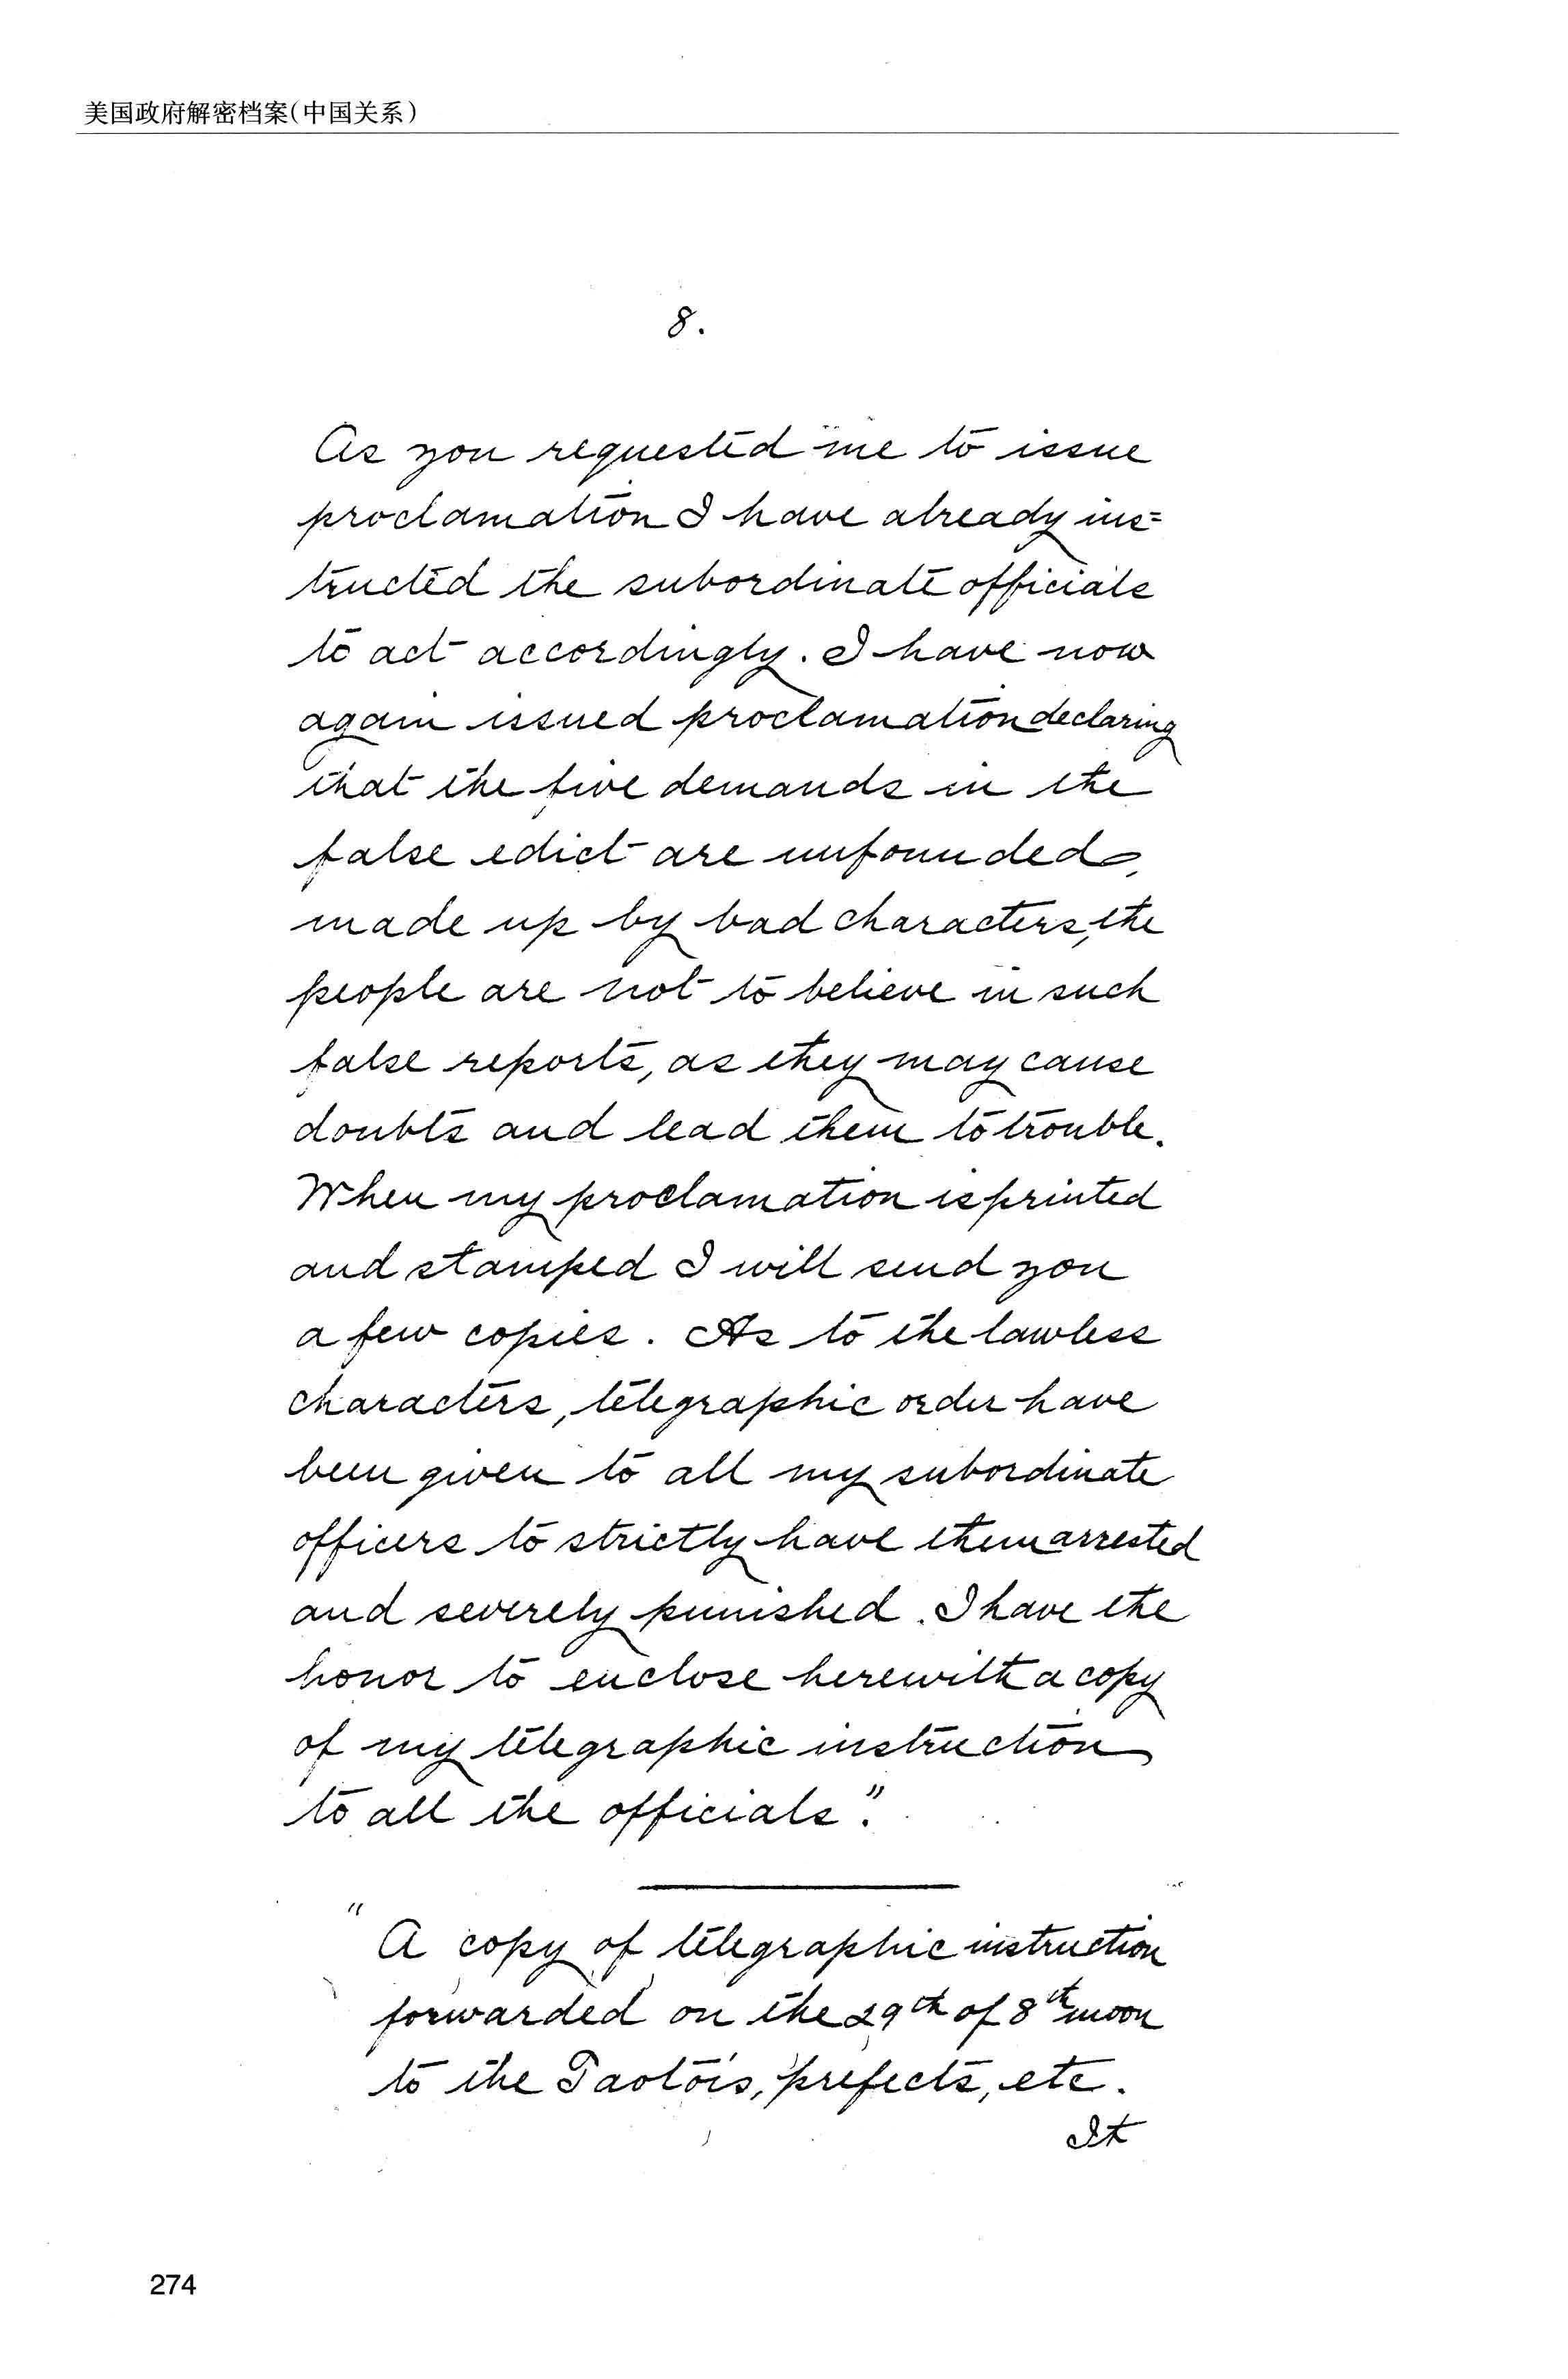 美国政府解密档案(中国关系)
8.
As you requested me to issue
proclamation I have already ins=
tructed the subordinate officials
to act accordingly. I have now
again issued proclamation declaring
that the five demands in the
false edict are unfounded,
made up by bad characters, the
people are not to believe in such
false reports, as they may cause
doubts and lead them to trouble.
When my proclamation is printed
and stamped I will send you
a few copies. As to the lawless
characters, telegraphic order have
been given to all my subordinate
officers to strictly have them arrested
and severely punished. I have the
honor to enclose herewith a copy
of my telegraphic instruction
to all the officials."
"A copy of telegraphic instruction
forwarded on the 29th of 8th moon
to the Taotois, prefects, etc.
It
274